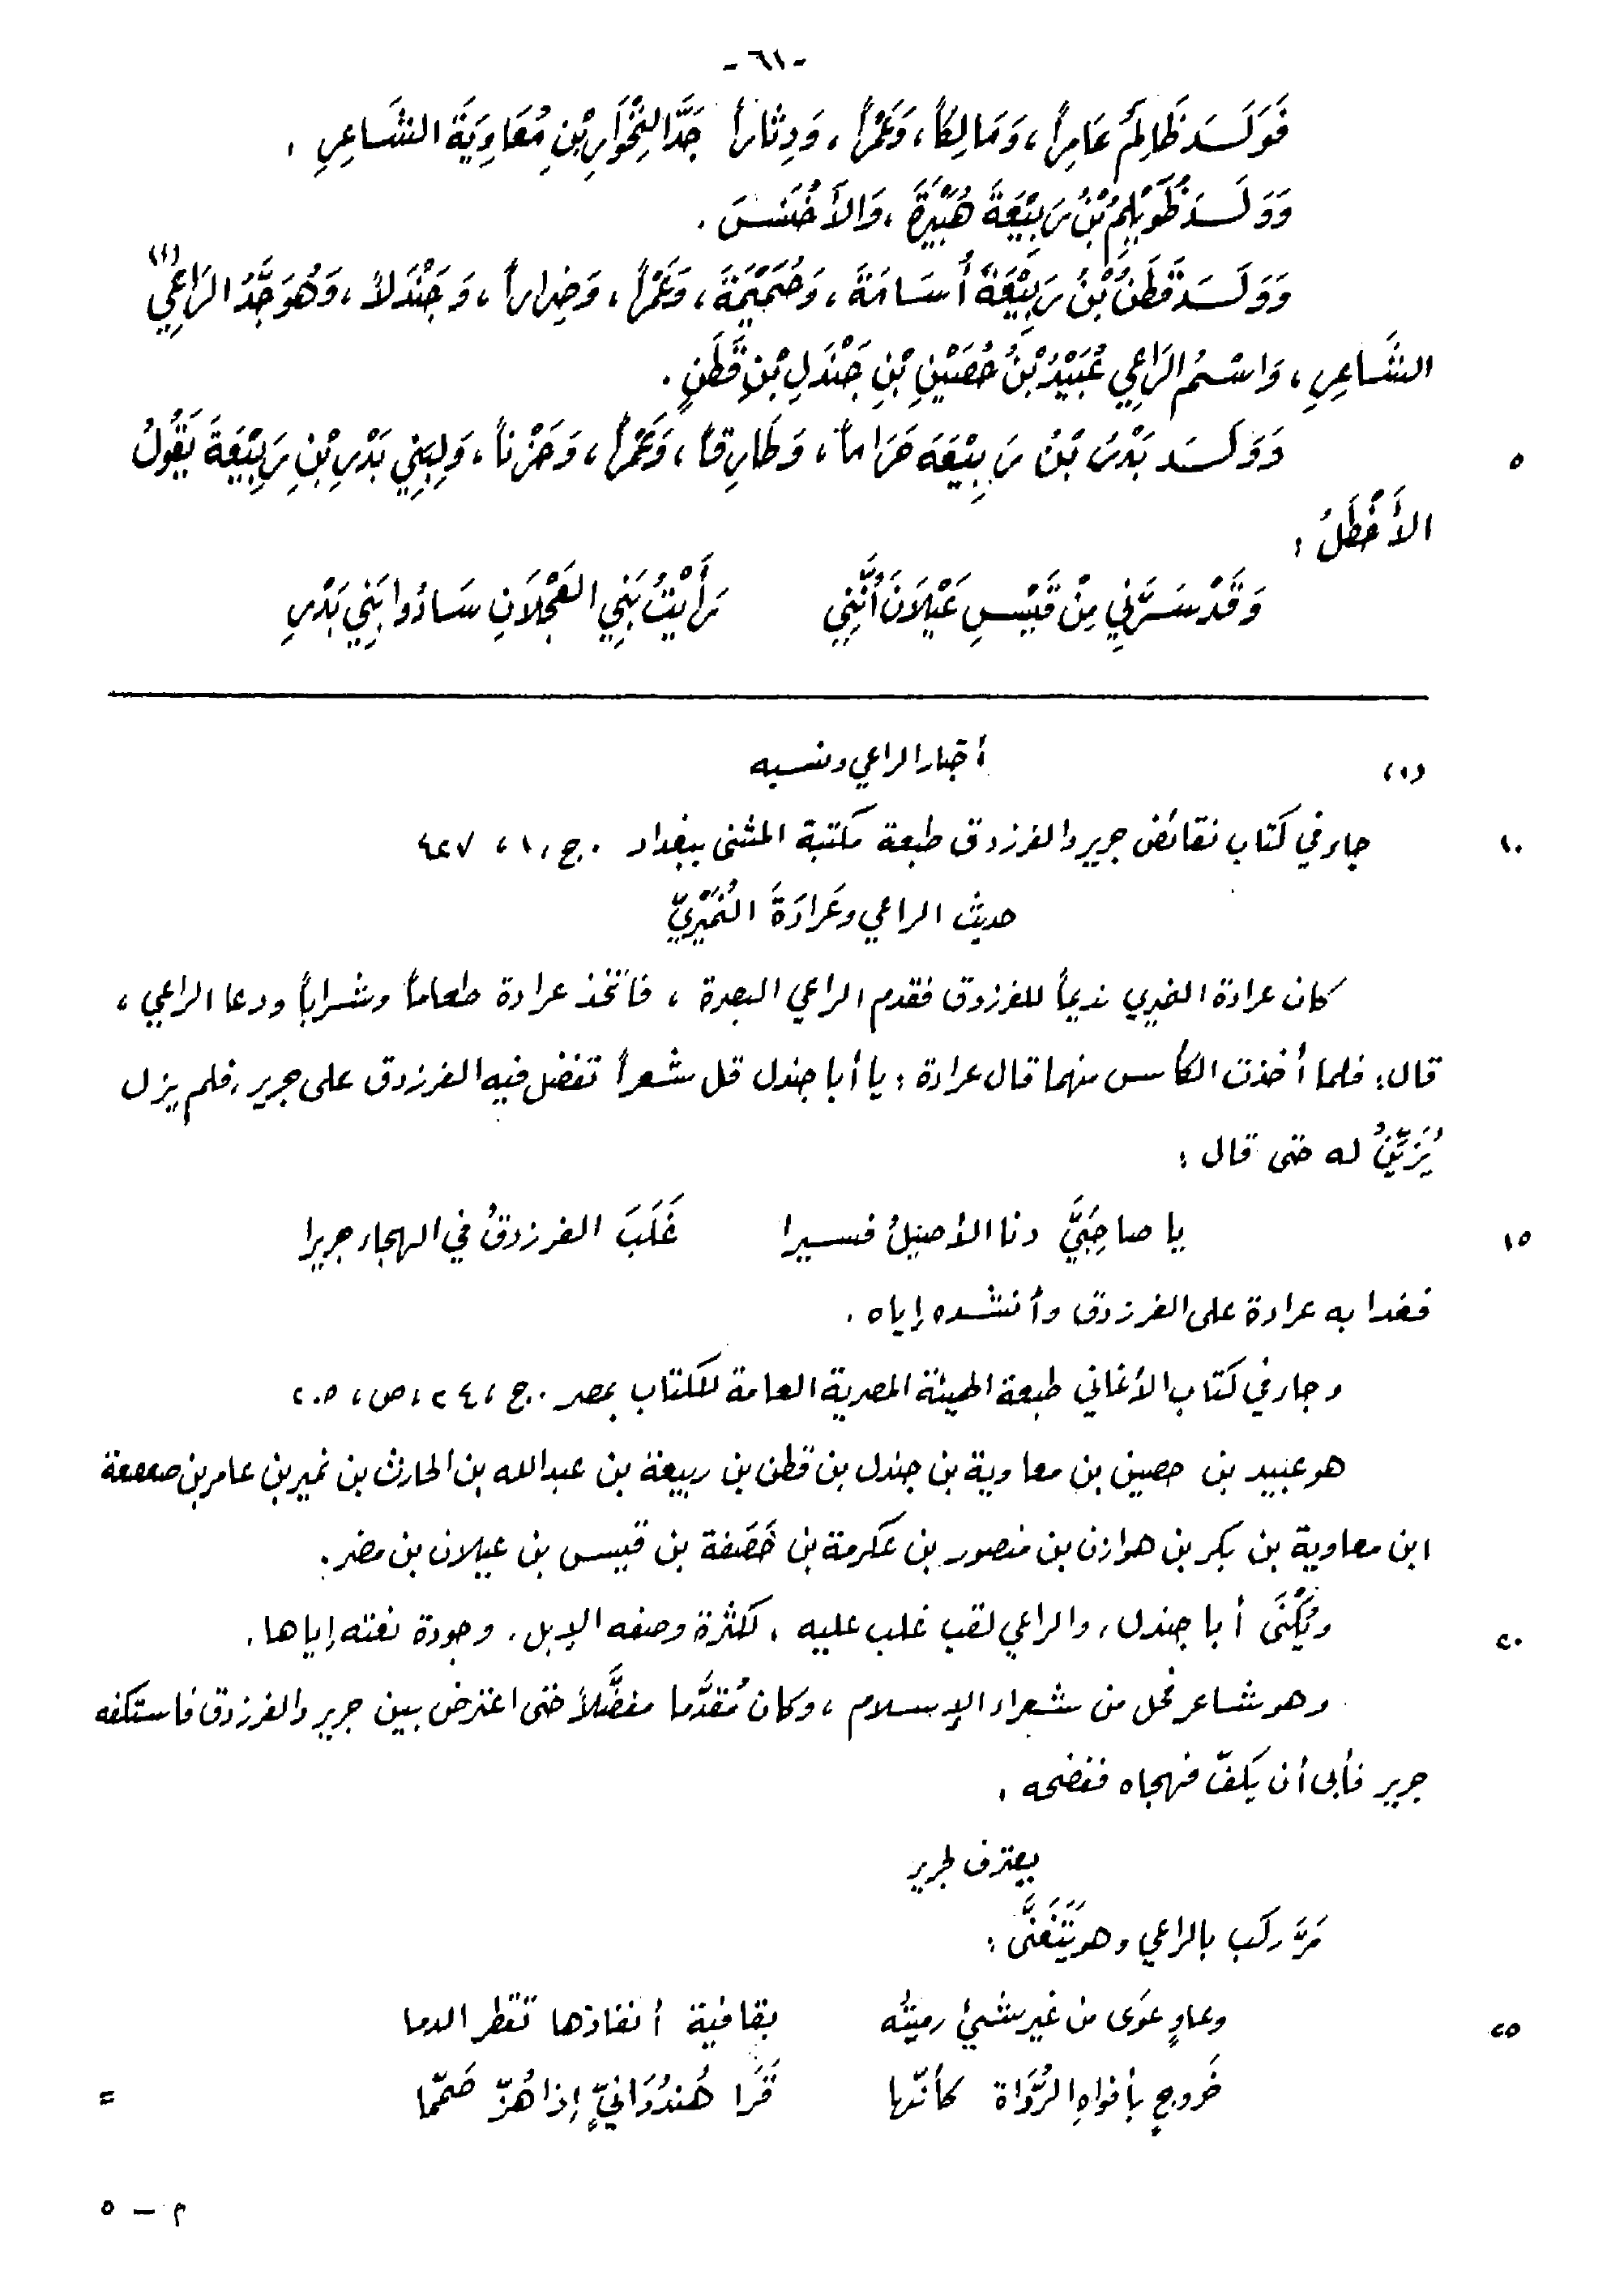 -٦١-
فَوَلَـدَ ظَالِمٌ عَامِراً، وَمَالِكاً، وَعَمْراً، وَدِثَاراً جَدَّ النِّخْوَارِ بْنِ مُعَاوِيَةَ الشَّاعِرِ .
وَوَلَـدَ ظُوَيْلِمُ بْنُ رَبِيْعَةَ هُبَيْرَةَ، وَالأَخْنَسَ .
وَوَلَـدَ قَطَنُ بْنُ رَبِيْعَةَ أُسَامَةَ، وَحُمَيْمَةَ، وَعَمْراً، وَضِرَاراً، وَجَنْدَلاً، وَهُوَ جَدُّ الرَّاعِي (١)
الشَّاعِرِ، وَاسْمُ الرَّاعِي عُبَيْدُ بْنُ حُصَيْنِ بْنِ جَنْدَلِ بْنِ قَطَنٍ .
٥ وَوَلَـدَ بَدْرُ بْنُ رَبِيْعَةَ حَرَاماً، وَطَارِقاً، وَعَمْراً، وَحَزْناً، وَلِبَنِي بَدْرِ بْنِ رَبِيْعَةَ يَقُولُ
الأَخْطَلُ :
وَقَدْ سَرَّنِي مِنْ قَيْسِ عَيْلَانَ أَنَّنِي رَأَيْتُ بَنِي العَجْلَانِ سَادُوا بَنِي بَدْرِ
(١) أخبار الراعي ونسبه
١٠ جاء في كتاب نقائض جرير والفرزدق طبعة مكتبة المثنى ببغداد . ج، ١، ٤٢٧
حديث الراعي وعَرَادَةَ النُّمَيْرِيّ
كان عرادة النميري نديماً للفرزدق فقدم الراعي البصرة ، فاتّخذ عرادة طعاماً وشراباً ودعا الراعي ،
قال: فلما أخذت الكأس منهما قال عرادة : يا أبا جندل قل شعراً تفضل فيه الفرزدق على جرير، فلم يزل
يُزَيِّنُ له حتى قال :
١٥ يا صاحِبَيَّ دنا الأصيلُ فسيرا غَلَبَ الفرزدقُ في الهجاء جريرا
فغدا به عرادة على الفرزدق وأنشده إياه .
وجاء في كتاب الأغاني طبعة الهيئة المصرية العامة للكتاب بمصر . ج، ٢٤، ص، ٢٠٥
هو عبيد بن حصين بن معاوية بن جندل بن قطن بن ربيعة بن عبد الله بن الحارث بن نمير بن عامر بن صعصعة
ابن معاوية بن بكر بن هوازن بن منصور بن عكرمة بن خَصَفة بن قيس بن عيلان بن مضر .
٢٠ ويُكْنَى أبا جندل، والراعي لقب غلب عليه ، لكثرة وصفه الإبل . وجودة نعته إياها .
وهو شاعر فحل من شعراء الإسلام ، وكان مُقدَّما مفضَّلاً حتى اعترض بين جرير والفرزدق فاستكفه
جرير فأبى أن يكفّ فهجاه ففضحه .
يعترف لجرير
مَرَّ ركب بالراعي وهو يَتَغَنَّى :
٢٥ وعاوٍ عَوَى من غير شيئ رميتُه بقافية أنفاذها تَقْطر الدما
خَروجٍ بأفواهِ الرُّوَاة كأنّها قَرَا هُندُوَانيٍّ إذا هُزّ صَمّما =
م - ٥